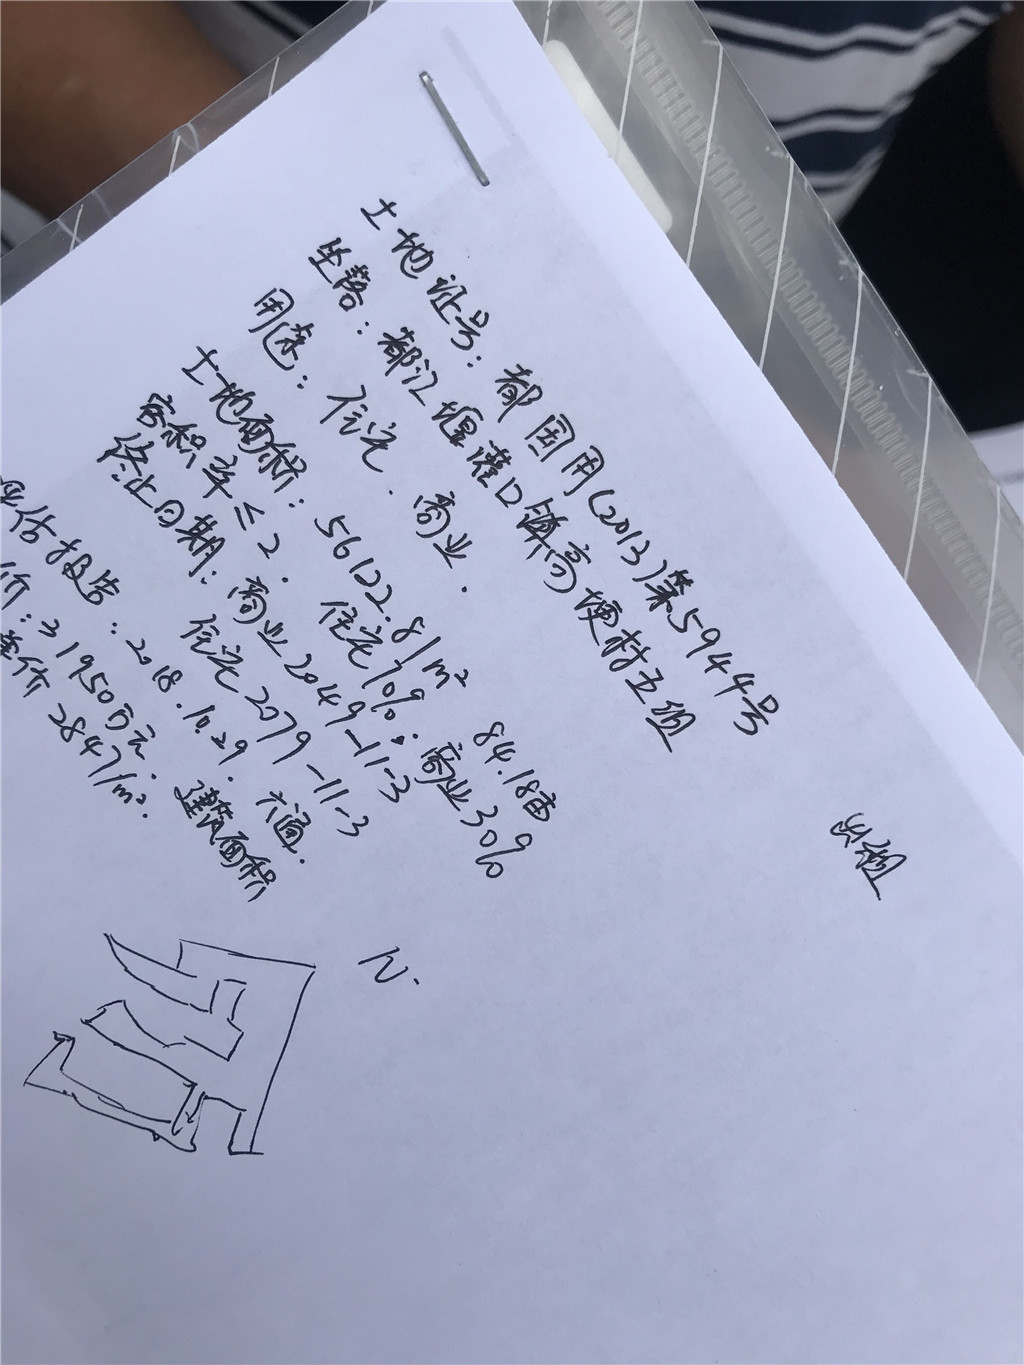 土地证号：都国用(2013)第5944号
坐落：都江堰灌口镇高埂村五组
用途：住宅．商业．
土地面积：56122.81m² 84.18亩
容积率≤2． 住宅70%；商业30%
终止日期：商业2049-11-3
住宅2079-11-3
评估报告：2018.10.29． 六通．
价：31950万元． 建筑面积
单价2847/m²．
出租
N.